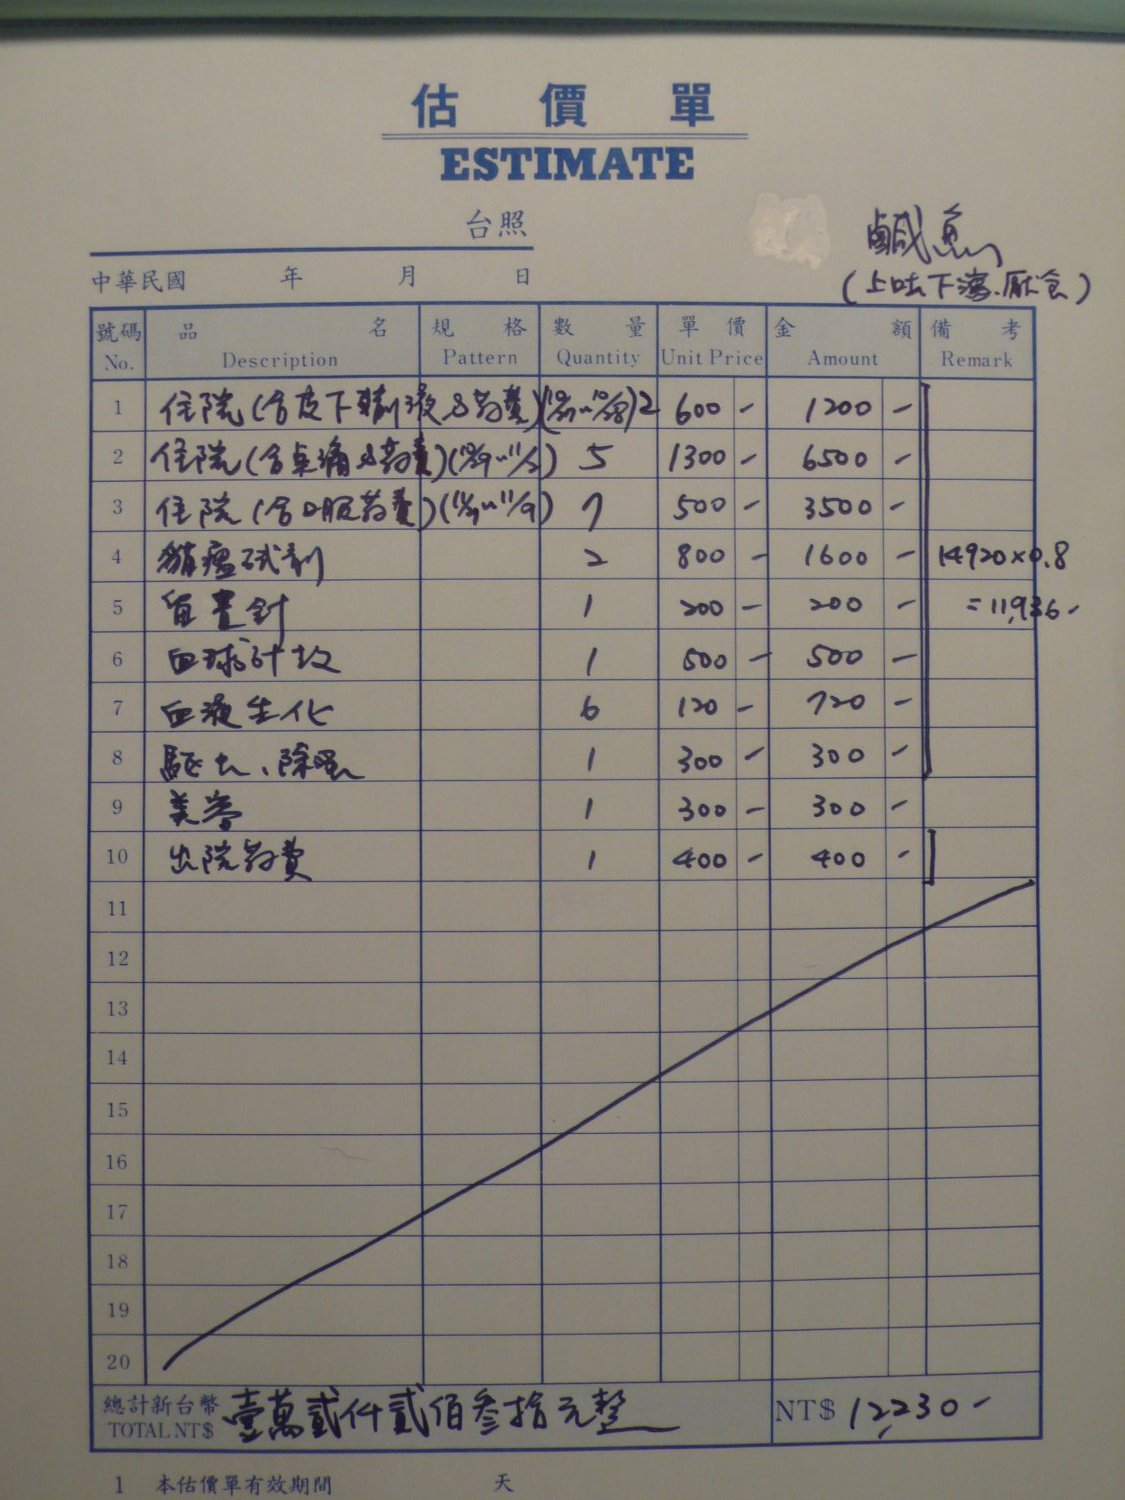 估價單
ESTIMATE
台照
鹹魚
(上吐下瀉、厭食)
中華民國 年 月 日
號碼 No. 品名 Description 規格 Pattern 數量 Quantity 單價 Unit Price 金額 Amount 備考 Remark
1 住院(含皮下輸液&藥費) 2 600- 1200-
2 住院(含點滴&藥費) 5 1300- 6500-
3 住院(含口服藥費) 7 500- 3500-
4 貓瘟試劑 2 800- 1600- 14920×0.8
5 留置針 1 200- 200- =11,936-
6 血球計數 1 500- 500-
7 血液生化 6 120- 720-
8 驅虫、除蚤 1 300- 300-
9 美容 1 300- 300-
10 出院藥費 1 400- 400-
11
12
13
14
15
16
17
18
19
20
總計新台幣 TOTAL NT$ 壹萬貳仟貳佰參拾元整 NT$ 12,230-
1 本估價單有效期間 天